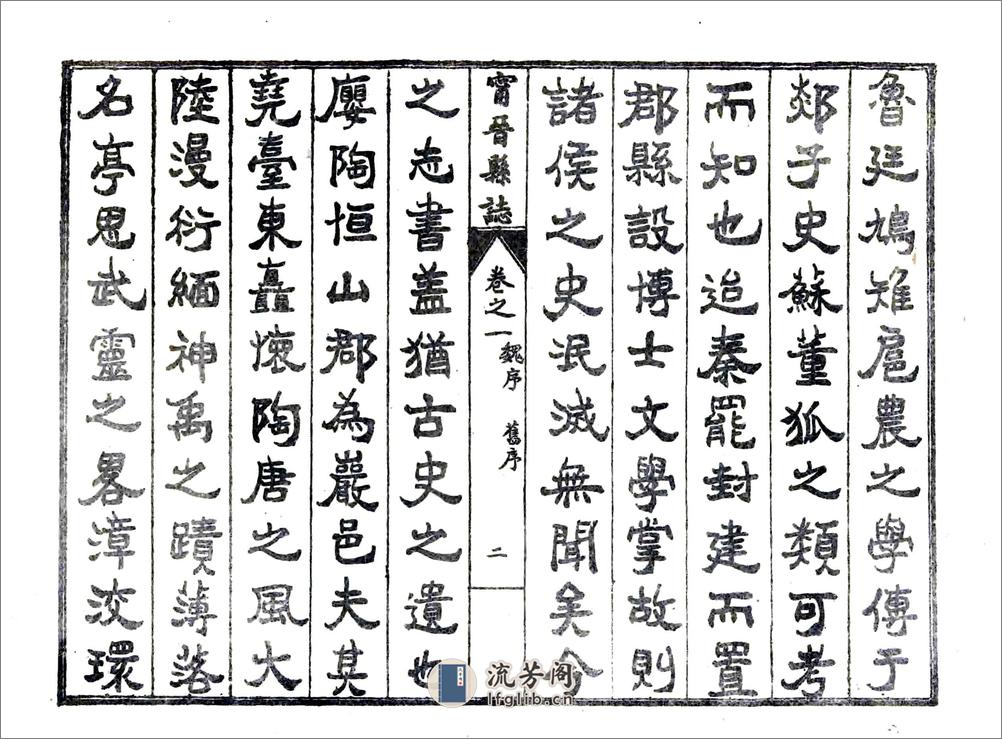 魯廷鳩雉扈農之學傳于
郯子史蘇董狐之類可考
而知也迨秦罷封建而置
郡縣設博士文學掌故則
諸侯之史泯滅無聞矣今
甯晉縣誌
卷之一
魏序
舊序
二
之志書盖猶古史之遺也
廮陶恒山郡為巖邑夫其
堯臺東矗懷陶唐之風大
陸漫衍緬神禹之蹟薄落
名亭思武靈之畧漳洨環
流芳阁
lfglib.cn